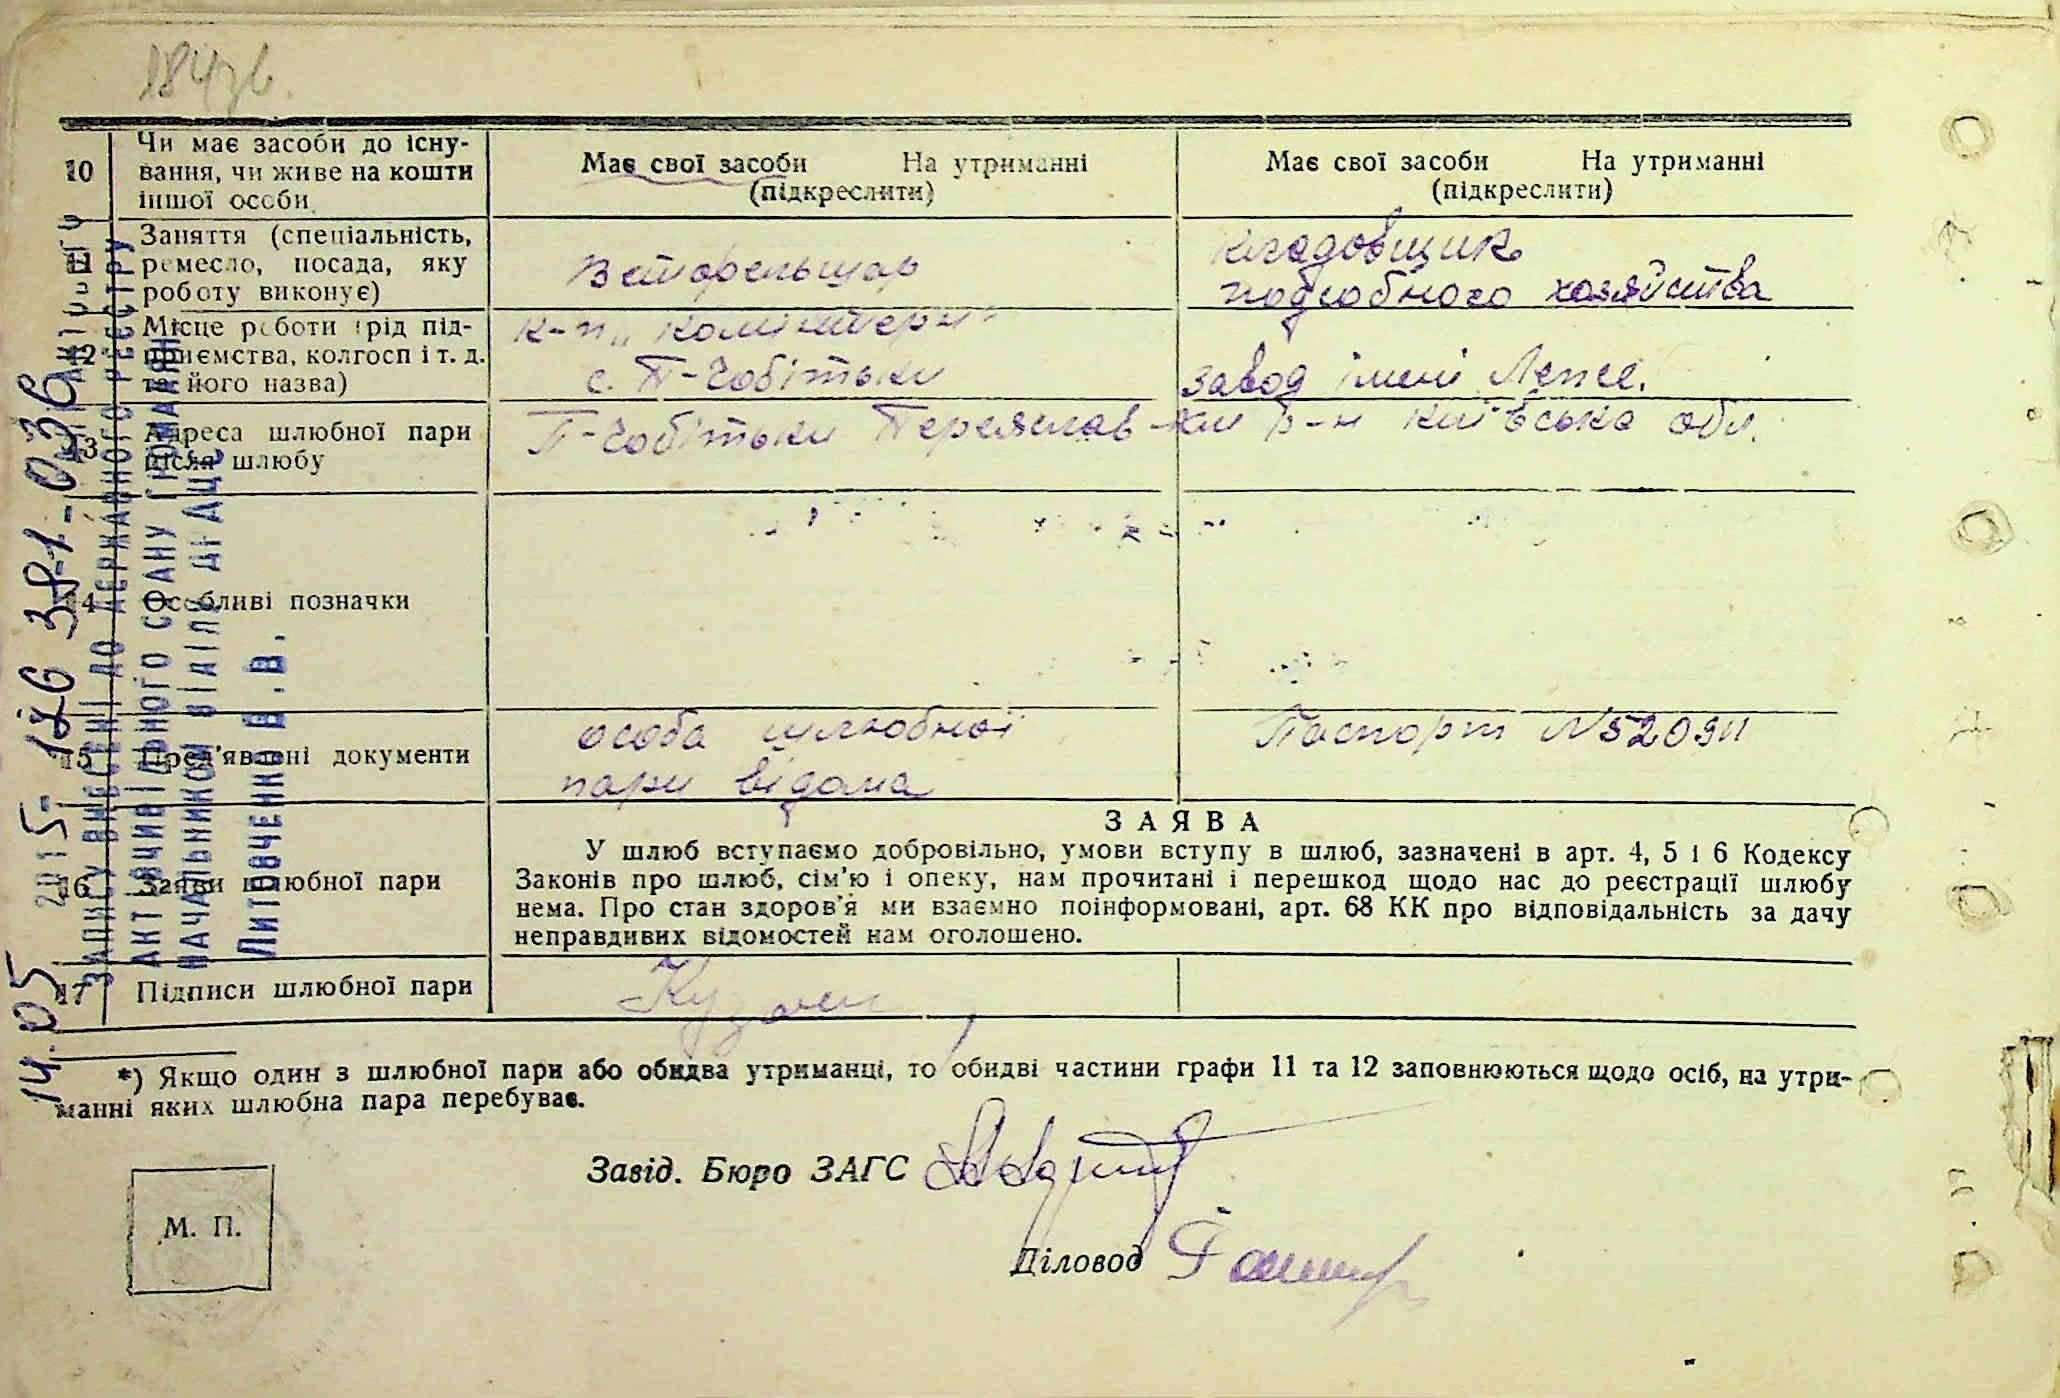 184зв.
10
Чи має засоби до існу-
вання, чи живе на кошти
іншої особи
Має свої засоби На утриманні
(підкреслити)
Має свої засоби На утриманні
(підкреслити)
11
Заняття (спеціальність,
ремесло, посада, яку
роботу виконує)
Ветфельшар
Кладовщик
подсобного хозяйства
12
Місце роботи (рід під-
приємства, колгосп і т. д.
та його назва)
к-п „Комінтерн"
с. П-Чобітьки
завод імені Лепсе.
13
Адреса шлюбної пари
після шлюбу
П-Чобітьки Переяслав-Хм р-н Київська обл.
14
Особливі позначки
15
Пред'явлені документи
особа шлюбної
пари відома
Паспорт №520911
16
Заяви шлюбної пари
ЗАЯВА
У шлюб вступаємо добровільно, умови вступу в шлюб, зазначені в арт. 4, 5 і 6 Кодексу
Законів про шлюб, сім'ю і опеку, нам прочитані і перешкод щодо нас до реєстрації шлюбу
нема. Про стан здоров'я ми взаємно поінформовані, арт. 68 КК про відповідальність за дачу
неправдивих відомостей нам оголошено.
17
Підписи шлюбної пари
*) Якщо один з шлюбної пари або обидва утриманці, то обидві частини графи 11 та 12 заповнюються щодо осіб, на утри-
манні яких шлюбна пара перебуває.
Завід. Бюро ЗАГС
Діловод
М. П.
14.05 2015
ЗАПИС ВНЕСЕНІ ДО ДЕРЖАВНОГО РЕЄСТРУ
АКТІВ ЦИВІЛЬНОГО СТАНУ ГРОМАДЯН
НАЧАЛЬНИКОМ ВІДДІЛУ ДРАЦС
Литовченко В.В.